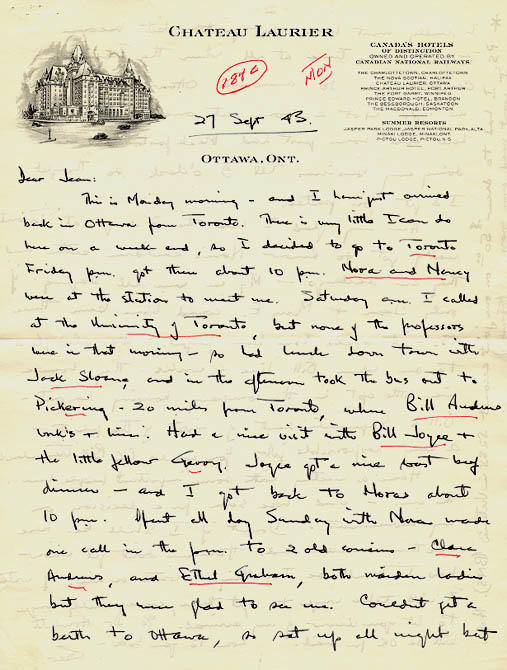 CHATEAU LAURIER
CANADA'S HOTELS
OF DISTINCTION
OWNED AND OPERATED BY
CANADIAN NATIONAL RAILWAYS.
THE CHARLOTTETOWN, CHARLOTTETOWN
THE NOVA SCOTIAN, HALIFAX
CHATEAU LAURIER, OTTAWA
PRINCE ARTHUR HOTEL, PORT ARTHUR
THE FORT GARRY, WINNIPEG
PRINCE EDWARD HOTEL, BRANDON
THE BESSBOROUGH, SASKATOON
THE MACDONALD, EDMONTON
SUMMER RESORTS
JASPER PARK LODGE, JASPER NATIONAL PARK, ALTA
MINAKI LODGE, MINAKI, ONT.
PICTOU LODGE, PICTOU, N.S.
MON
27 Sept 43.
OTTAWA, ONT.
Dear Jean:
This is Monday morning - and I have just arrived
back in Ottawa from Toronto. There is very little I can do
here on a week end, so I decided to go to Toronto
Friday p.m. got there about 10 pm. Nora and Nancy
were at the station to meet me. Saturday a.m. I called
at the University of Toronto, but none of the professors
were in that morning - so had lunch down town with
Jack Sloane, and in the afternoon took the bus out to
Pickering - 20 miles from Toronto, where Bill Andrews
works + lives. Had a nice visit with Bill Joyce +
the little fellow Gerry. Joyce got a nice roast beef
dinner - and I got back to Noras about
10 p.m. Spent all day Sunday with Nora made
one call in the p.m. to 2 old cousins - Clara
Andrews, and Ethel Graham, both maiden ladies
but they were glad to see me. Couldnt get a
berth to Ottawa, so sat up all night but